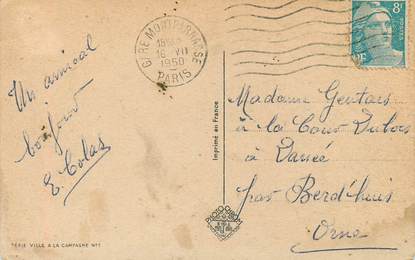 Un amical
bonjour
E Colas
GARE MONTPARNASSE
16 VII
1950
PARIS
8F
Imprimé en France
PHOTOCHROM
Madame Gentais
à la Cour Dubois
à Dancé
par Berd'huis
Orne
SÉRIE VILLE A LA CAMPAGNE N°1